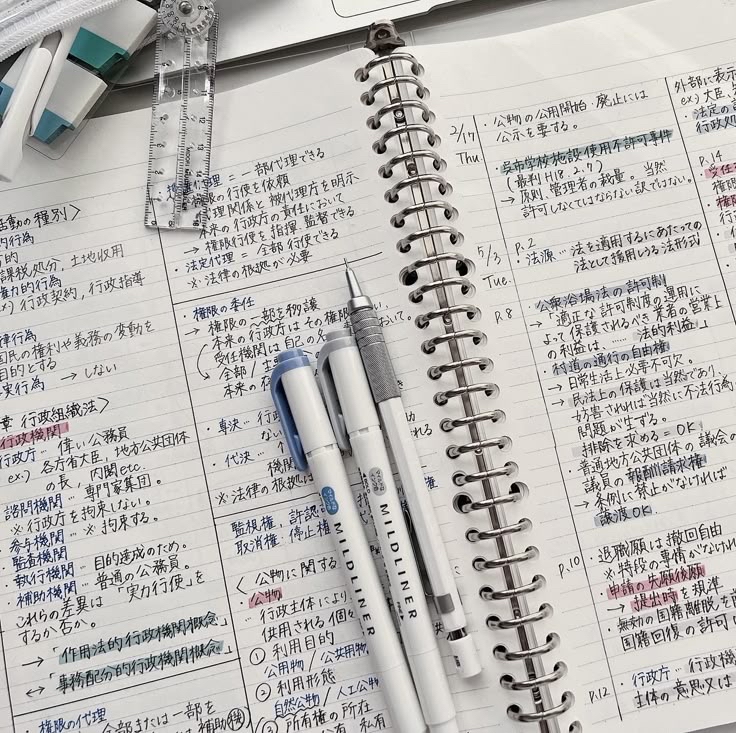 活動の種別〉
的行為
的
課税処分, 土地収用
権力的行為
ex) 行政契約, 行政指導
律行為
国民の権利や義務の変動を
目的とする
実行為 → しない
章 行政組織法〉
行政機関
行政庁… 偉い公務員
ex) 各庁省大臣, 地方公共団体
の長, 内閣 etc.
諮問機関… 専門家集団。
※行政庁を拘束しない。
・参与機関… ※拘束する。
・監査機関
・執行機関… 目的達成のため。
・補助機関… 普通の公務員。
これらの差異は「実力行使」を
するか否か。
→「作用法的行政機関概念」
↔「事務配分的行政機関概念」
・権限の代理
全部または一部を
補助機
代理 = 一部代理できる
の行使を依頼
代理関係と被代理庁を明示
本来の行政庁の責任において
→ 権限行使を指揮, 監督できる
・法定代理 = 全部行使できる
※法律の根拠が必要
・権限の委任
→ 権限の一部を移譲
本来の行政庁はその権限
受任機関は自己の
おいて。
→ 全部
本来の
・専決… 行政
ない
・代決…
権限
※法律の根拠は
監視権, 許認
取消権, 停止権
〈公物に関する
公物
・行政主体により
供用される個々
① 利用目的
公用物 / 公共用物
② 利用形態
自然公物 / 人工公物
③ 所有権の所在
私有
MILDLINER
MILDLINER
2/17
Thu.
・公物の公用開始, 廃止には
公示を要する。
呉市学校施設使用不許可事件
(最判H18.2.7)
→ 原則, 管理者の裁量。当然
許可しなくてはならない訳ではない。
5/3
Tue.
P.2
・法源… 法を適用するにあたっての
法として援用しうる法形式
P.8
・公衆浴場法の許可制
→「適正な許可制度の運用に
よって保護されるべき業者の営業上
の利益は、…… 法的利益」
・村道の通行の自由権
→ 日常生活上必要不可欠。
→ 民法上の保護は当然であり、
妨害されれば当然に不法行為
問題が生ずる。
排除を求める = OK
・普通地方公共団体の議会の
議員の報酬請求権
→ 条例に禁止がなければ
譲渡OK.
P.10
・退職願は撤回自由
※特段の事情がなけれ
・申請の失願後願
→ 提出時を規準
・無効の国籍離脱を前
国籍回復の許可
P.12
・行政庁… 行政機
主体の意思又は
外部に表示
ex) 大臣,
・法定の
行政処
P.14
・受任
権限